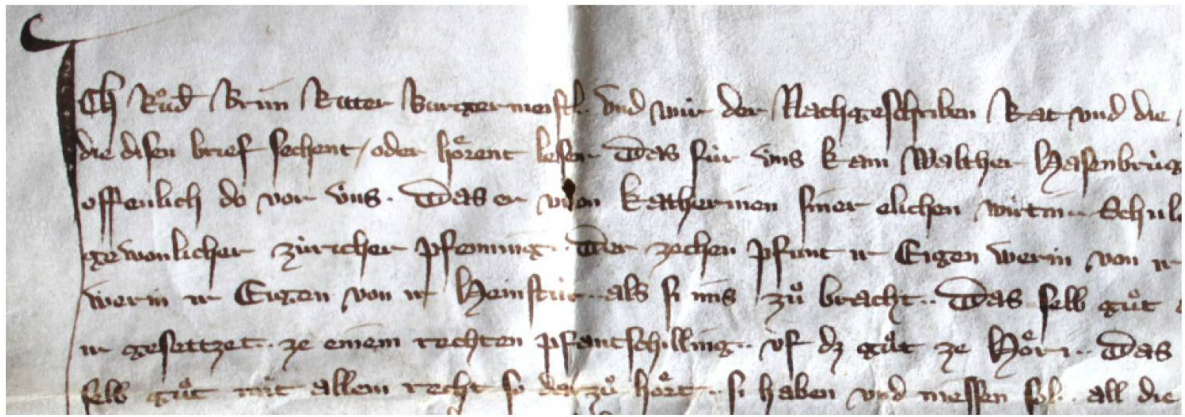 ICh Ruͦd Brun Ritter Burgermeist. vnd wir der Nachgeschriben Rat vnd die
die disen brief sechent / oder hoͤrent lesen Das fuͥr vns kam Walther Hasenbruͥg
offenlich do vor vns. Das er von Katherinen siner elichen wirtin Schul
gewonlicher zuͥricher pfenning. Der zechen pfunt ir Eigen werin von ir
werin ir Eigen von ir Heinstuͥr.. als si im zuͦ bracht.. Das selb guͦt
ir gesettzet.. ze einem rechten pfantschilling.. vf dz guͦt ze Hoͤri.. Das
selb guͦt mit allem recht so dar zuͦ hoͤrt. si haben vnd niessen sol.. all die